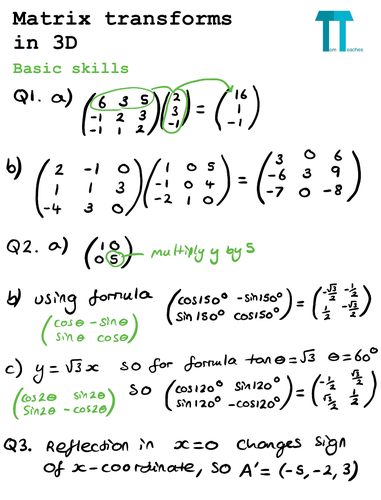 Matrix transforms
in 3D
Tom Teaches
Basic skills
Q1. a) (6 3 5 / -1 2 3 / -1 1 2) (2 / 3 / -1) = (16 / 1 / -1)
b) (2 -1 0 / 1 1 3 / -4 3 0) (1 0 5 / -1 0 4 / -2 1 0) = (3 0 6 / -6 3 9 / -7 0 -8)
Q2. a) (1 0 / 0 5) multiply y by 5
b) using formula (cos150° -sin150° / sin150° cos150°) = (-√3/2 -1/2 / 1/2 -√3/2)
(cosθ -sinθ / sinθ cosθ)
c) y = √3x so for formula tanθ = √3 θ = 60°
(cos2θ sin2θ / sin2θ -cos2θ) so (cos120° sin120° / sin120° -cos120°) = (-1/2 √3/2 / √3/2 1/2)
Q3. Reflection in x=0 changes sign
of x-coordinate, so A' = (-5, -2, 3)